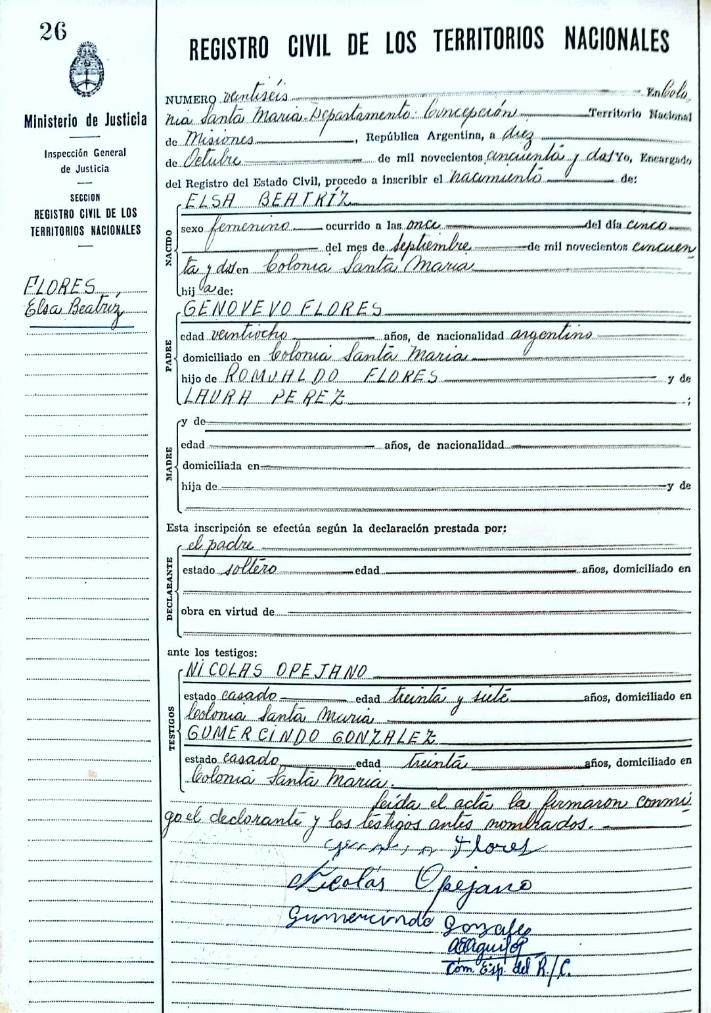 26
REGISTRO CIVIL DE LOS TERRITORIOS NACIONALES
Ministerio de Justicia
Inspección General
de Justicia
SECCION
REGISTRO CIVIL DE LOS
TERRITORIOS NACIONALES
FLORES
Elsa Beatríz
NUMERO veintiséis En Colo
nia Santa Maria-Departamento: Concepción Territorio Nacional
de Misiones, República Argentina, a diez
de Octubre de mil novecientos cincuenta y dos Yo, Encargado
del Registro del Estado Civil, procedo a inscribir el nacimiento de:
NACIDO
ELSA BEATRÍZ
sexo femenino ocurrido a las once del día cinco
del mes de septiembre de mil novecientos cincuen
ta y dos en Colonia Santa Maria
hija de:
PADRE
GENOVEVO FLORES
edad veintiocho años, de nacionalidad argentino
domiciliado en Colonia Santa Maria
hijo de ROMUALDO FLORES y de
LAURA PEREZ ;
MADRE
y de
edad años, de nacionalidad
domiciliada en
hija de y de
Esta inscripción se efectúa según la declaración prestada por:
DECLARANTE
el padre
estado soltero edad años, domiciliado en
obra en virtud de
ante los testigos:
TESTIGOS
NICOLAS OPEJANO
estado casado edad treinta y siete años, domiciliado en
Colonia Santa Maria
GUMERCINDO GONZALEZ
estado casado edad treinta años, domiciliado en
Colonia Santa Maria.
leída el acta la firmaron conmi
go el declarante y los testigos antes nombrados.
Flores
Nicolás Opejano
Gumercindo Gonzalez
Com. Esp. del R/C.